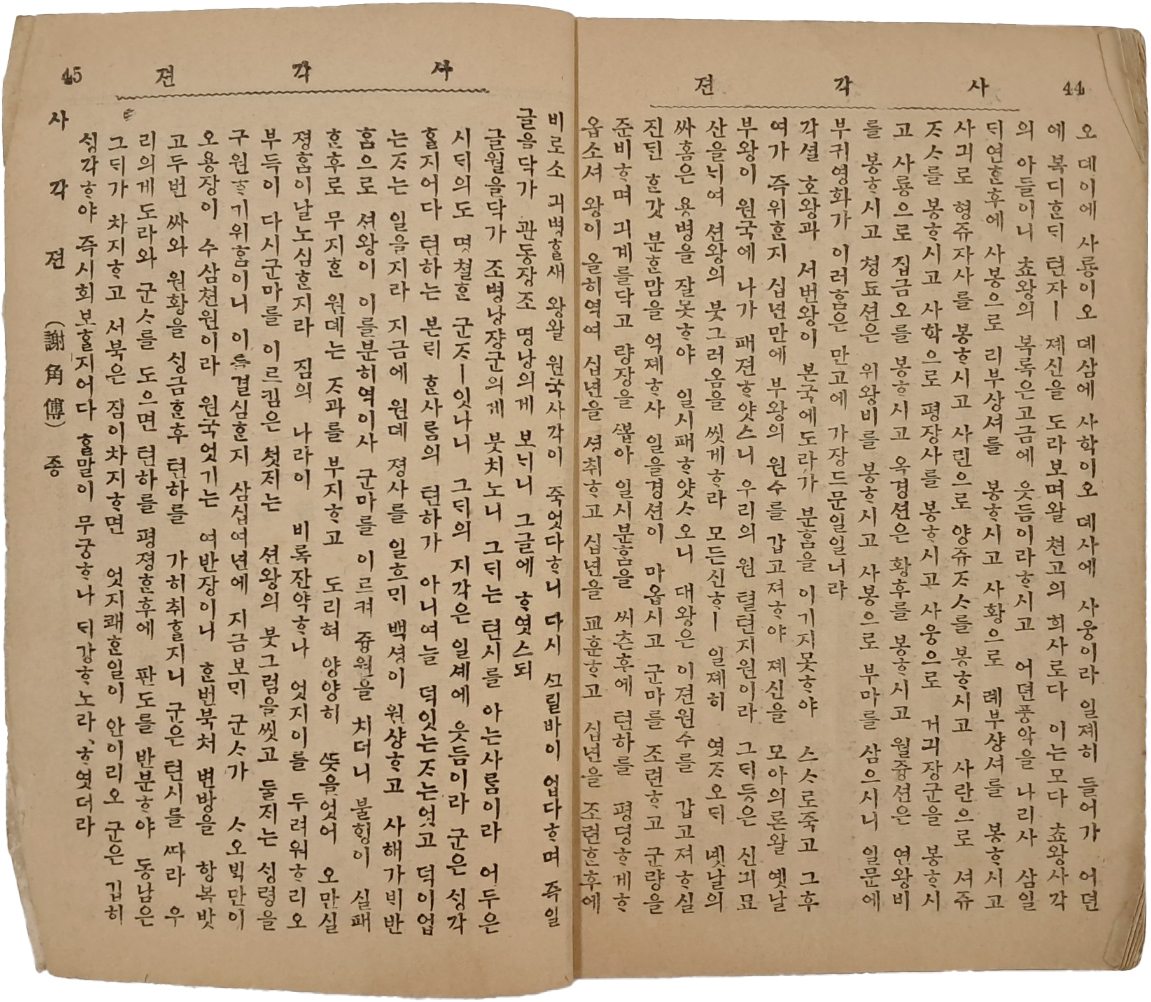 44
사각젼
오 뎨이에 사룡이오 뎨삼에 사학이오 뎨사에 사웅이라 일졔히 들어가 어뎐
에 복디ᄒᆞᆫᄃᆡ 텬자ㅣ 졔신을 도라보며왈 쳔고의 희사로다 이는모다 쵸왕사각
의 아들이니 쵸왕의 복록은고금에 읏듬이라ᄒᆞ시고 어뎐풍악을 나리사 삼일
ᄃᆡ연ᄒᆞᆫ후에 사봉으로 리부상셔를 봉ᄒᆞ시고 사황으로 례부샹셔를 봉ᄒᆞ시고
사긔로 형쥬자사를 봉ᄒᆞ시고 사린으로 양쥬ᄌᆞᄉᆞ를 봉ᄒᆞ시고 사란으로 셔쥬
ᄌᆞᄉᆞ를 봉ᄒᆞ시고 사학으로 평장사를 봉ᄒᆞ시고 사웅으로 거긔장군을 봉ᄒᆞ시
고 사룡으로 집금오를 봉ᄒᆞ시고 옥경션은 황후를 봉ᄒᆞ시고 월즁션은 연왕비
를 봉ᄒᆞ시고 쳥됴션은 위왕비를 봉ᄒᆞ시고 사봉으로 부마를 삼으시니 일문에
부귀영화가 이러ᄒᆞᆷ은 만고에 가장드문일일너라
각셜 호왕과 서번왕이 본국에도라가 분ᄒᆞᆷ을 이기지못ᄒᆞ야 스ᄉᆞ로죽고 그후
여가 즉위ᄒᆞᆫ지 십년만에 부왕의 원수를 갑고져ᄒᆞ야 졔신을 모아의론왈 옛날
부왕이 원국에 나가 패젼ᄒᆞ얏스니 우리의 원텰텬지원이라 그ᄃᆡ등은 신긔묘
산을ᄂᆡ여 션왕의 붓그러옴을 씻게ᄒᆞ라 모든신하ㅣ 일졔히 엿ᄌᆞ오ᄃᆡ 녯날의
싸홈은 용병을 잘못ᄒᆞ야 일시패ᄒᆞ얏ᄉᆞ오니 대왕은 이젼원수를 갑고져ᄒᆞ실
진ᄃᆡᆫ ᄒᆞᆫ갓 분ᄒᆞᆫ맘을 억졔ᄒᆞ사 일을경션이 마옵시고 군마를 조련ᄒᆞ고 군량을
준비ᄒᆞ며 긔계를닥고 량장을 ᄲᅩᆸ아 일시분ᄒᆞᆷ을 씨츤후에 텬하를 평뎡ᄒᆞ게ᄒᆞ
옵소셔 왕이 올히역여 십년을 셩취ᄒᆞ고 십년을 교훈ᄒᆞ고 십년을 조련ᄒᆞᆫ후에
사각젼
45
비로소 긔벽ᄒᆞᆯ새 왕왈 원국사각이 죽엇다ᄒᆞ니 다시 ᄭᅥ릴바이 업다ᄒᆞ며 즉일
글을닥가 관동장조 명낭의게 보ᄂᆡ니 그글에 ᄒᆞ엿스되
글월을닥가 조병낭쟝군의게 붓치노니 그ᄃᆡ는 텬시를 아는사ᄅᆞᆷ이라 어두은
시ᄃᆡ의도 명쳘ᄒᆞᆫ 군ᄌᆞㅣ잇나니 그ᄃᆡ의 지각은 일셰에 읏듬이라 군은 ᄉᆡᆼ각
ᄒᆞᆯ지어다 텬하는 본ᄃᆡ ᄒᆞᆫ사ᄅᆞᆷ의 텬하가 아니여늘 덕잇는ᄌᆞ는엇고 덕이업
는ᄌᆞ는 일을지라 지금에 원뎨 졍사를 일흐ᄆᆡ 백셩이 원샹ᄒᆞ고 사해가ᄇᆡ반
ᄒᆞᆷ으로 션왕이 이를분히역이사 군마를 이르켜 즁원을 치더니 불ᄒᆡᆼ이 실패
ᄒᆞᆫ후로 무지ᄒᆞᆫ 원뎨는 ᄌᆞ과를 부지ᄒᆞ고 도리혀 양양히 ᄯᅳᆺ을엇어 오만실
졍ᄒᆞᆷ이날노심ᄒᆞᆫ지라 짐의 나라이 비록잔약ᄒᆞ나 엇지이를 두려워ᄒᆞ리오
부득이 다시군마를 이르킴은 첫ᄌᆡ는 션왕의 붓그럼을씻고 둘ᄌᆡ는 ᄉᆡᆼ령을
구원ᄒᆞ기위ᄒᆞᆷ이니 이를결심ᄒᆞᆫ지 삼십여년에 지금보ᄆᆡ 군ᄉᆞ가 ᄉᆞ오ᄇᆡᆨ만이
오용장이 수삼쳔원이라 원국엇기는 여반장이나 ᄒᆞᆫ번북처 변방을 항복밧
고두번 싸와 원황을 ᄉᆡᆼ금ᄒᆞᆫ후 텬하를 가히취ᄒᆞᆯ지니 군은 텬시를 ᄯᅡ라 우
리의게도라와 군ᄉᆞ를 도으면 텬하를 평졍ᄒᆞᆫ후에 판도를 반분ᄒᆞ야 동남은
그ᄃᆡ가 차지ᄒᆞ고 서북은 짐이차지ᄒᆞ면 엇지쾌ᄒᆞᆫ일이 안이리오 군은 깁히
ᄉᆡᆼ각ᄒᆞ야 즉시회보ᄒᆞᆯ지어다 ᄒᆞᆯ말이 무궁ᄒᆞ나 ᄃᆡ강ᄒᆞ노라,ᄒᆞ엿더라
사각젼(謝角傳)죵